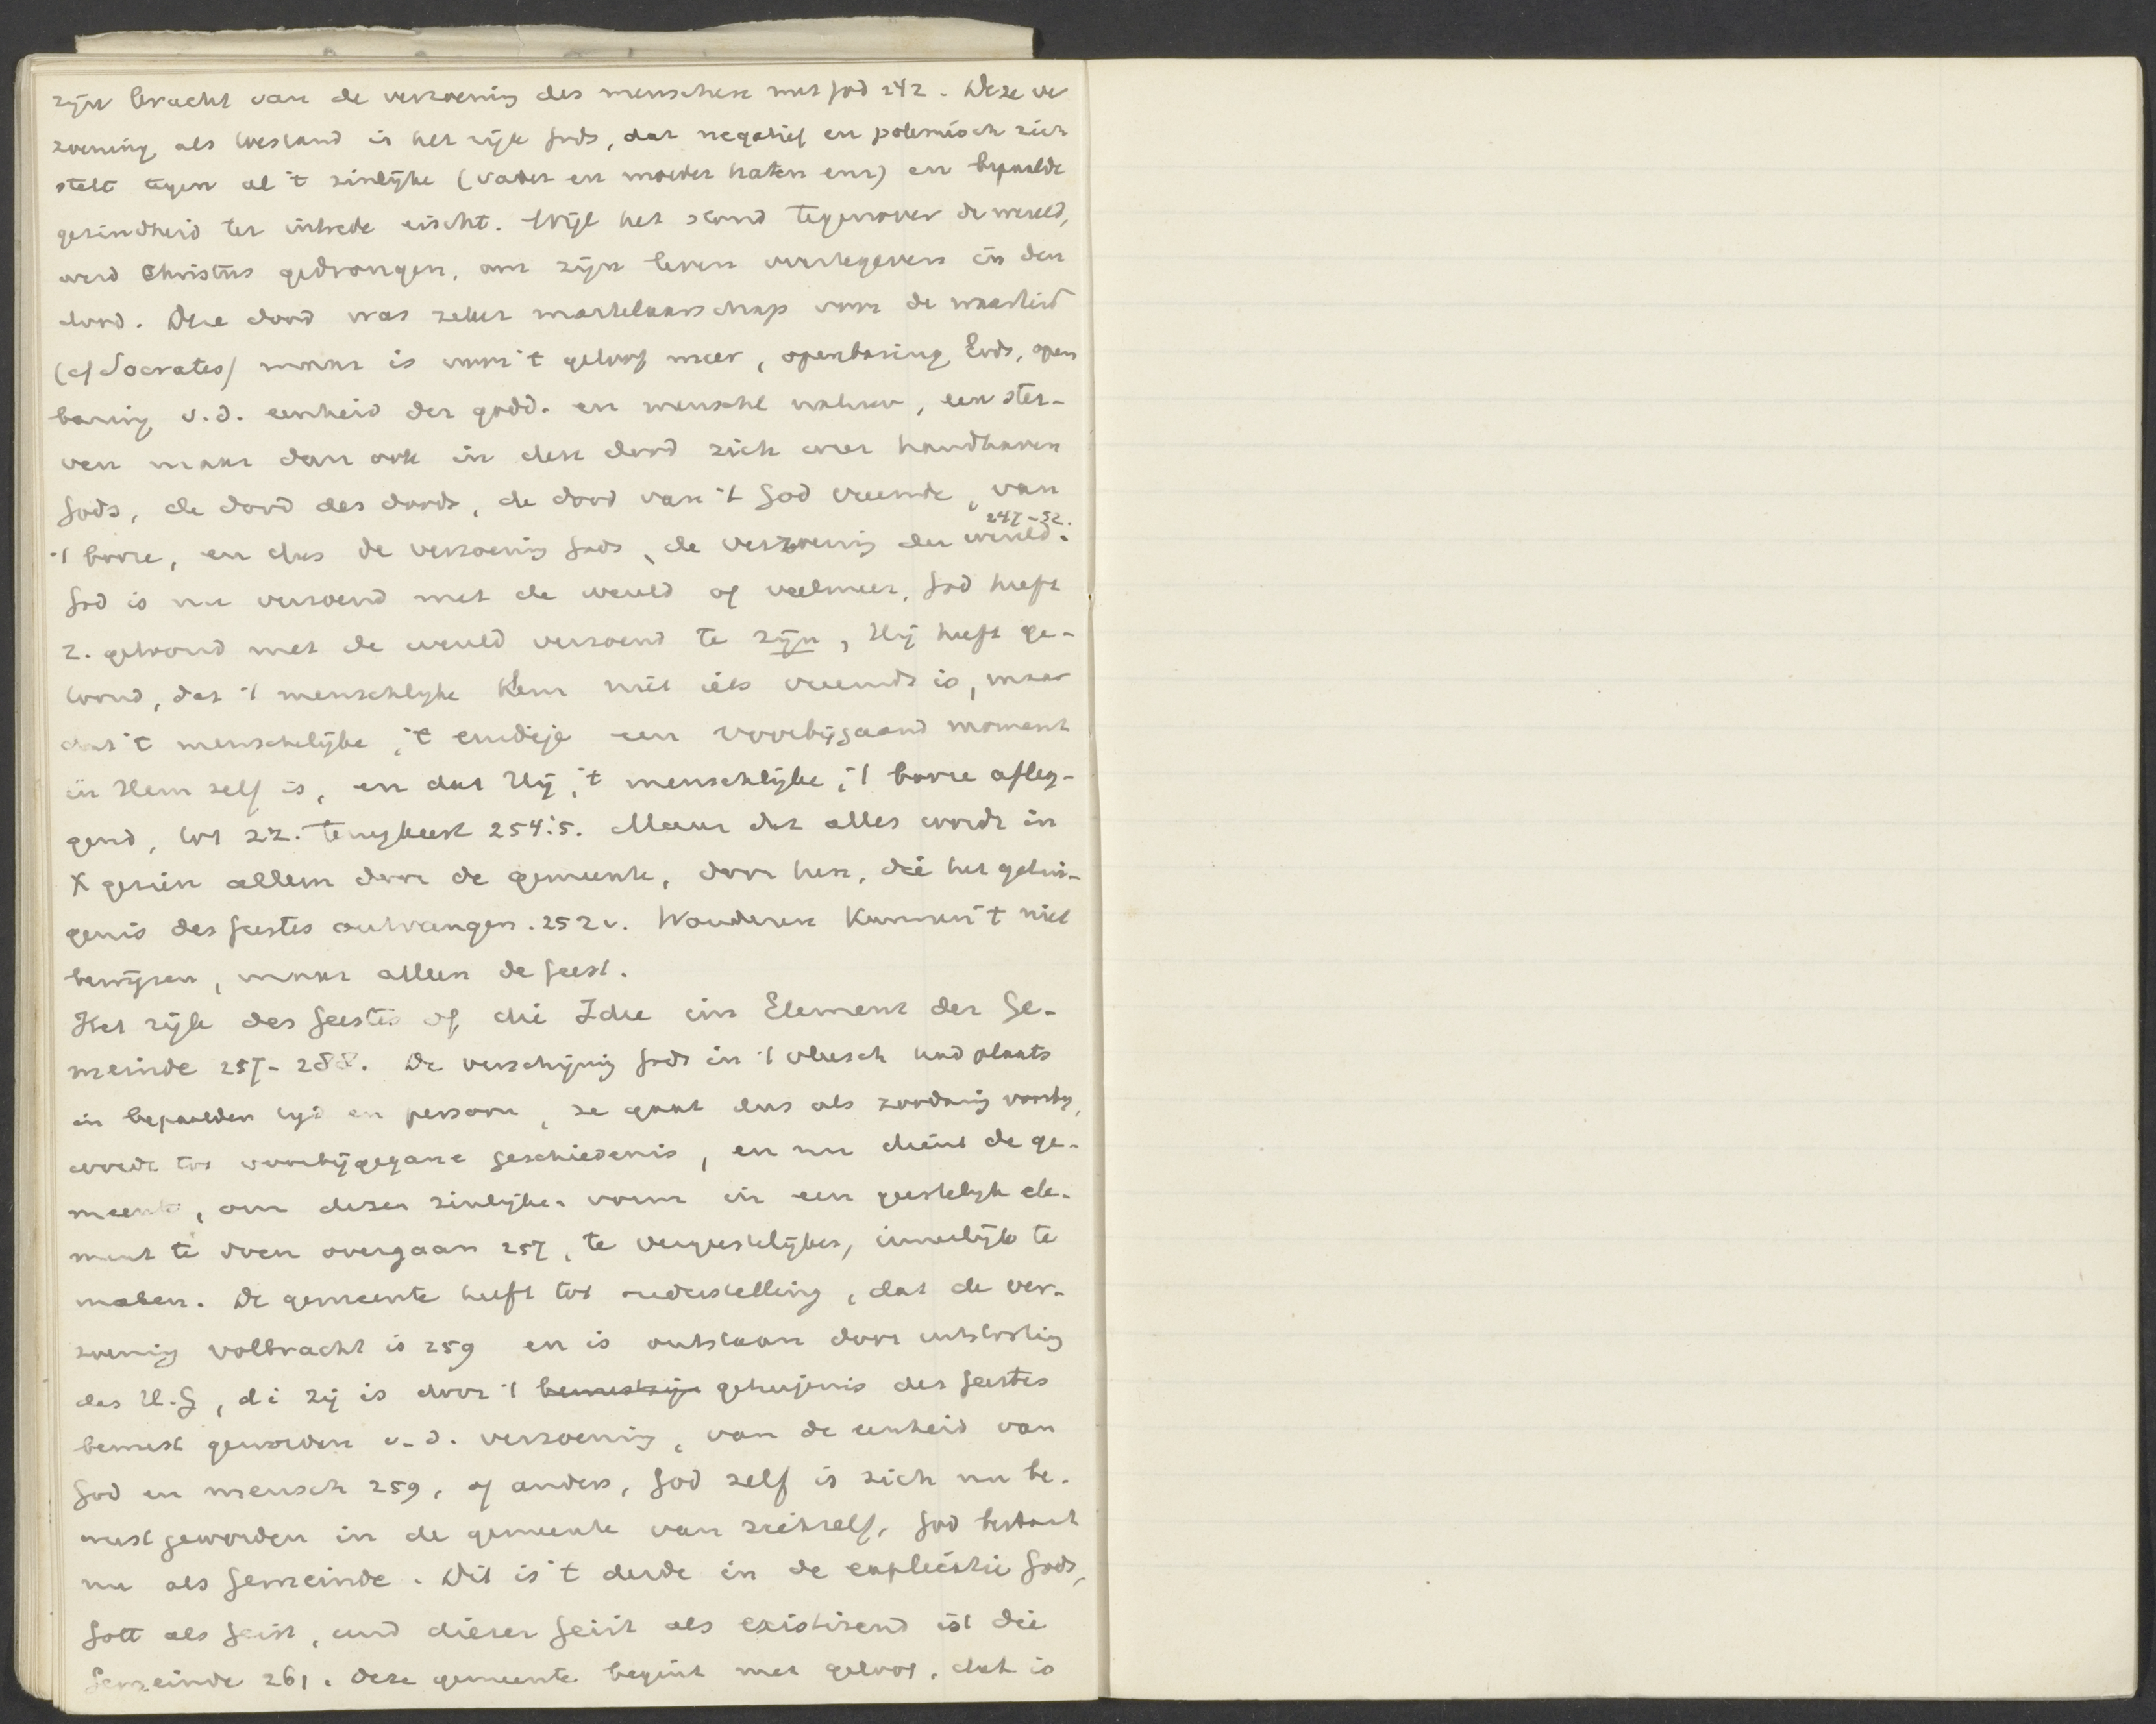 zijn kracht van de verzoening des menschen met God 242. Deze ver
zoening als bestand is het rijk Gods, dat negatief en polemisch zich
stelt tegen al 't zinlijke (vader en moeder haten enz) en bepaalde
gezindheid ter intrede eischt. Wijl het stond tegenover de wereld,
werd Christus gedrongen, om zijn leven overtegeven in den
dood. Die dood was zeker martelaarschap voor de waarheid
(cf Socrates) maar is voor 't geloof meer, openbaring Gods, open
baring v.d. eenheid der godd. en menschl natuur, een ster-
ven maar dan ook in den dood zich weer handhaven
Gods, de dood des doods, de dood van 't God vreemde, van
247-52.
't booze, en dus de verzoening Gods, de verzoening der wereld.
God is nu verzoend met de wereld of veelmeer, God heeft
z. getoond met de wereld verzoend te zijn, Hij heeft ge-
toond, dat 't menschlijke Hem niet iets vreemds is, maar
dat 't menschelijke, 't eindige een voorbijgaand moment
in Hem zelf is, en dat Hij, 't menschlijke, 't booze afleg-
gend, tot zz. terugkeert 254.5. Maar dat alles wordt in
X gezien alleen door de gemeente, door hen, die het getui-
genis des Geestes ontvangen. 252v. Wonderen kunnen 't niet
bewijzen, maar alleen de Geest.
Het rijk des Geestes of die Idee im Element der Ge-
meinde 257-288. De verschijning Gods in 't vleesch had plaats
in bepaalden tijd en persoon, ze gaat dus als zoodanig voorbij,
wordt tot voorbijgegane geschiedenis, en nu dient de ge-
meente, om dezen zinlijken vorm in een geestelijk ele-
ment te doen overgaan 257, te vergeestelijken, innerlijk te
maken. De gemeente heeft tot onderstelling, dat de ver-
zoening volbracht is 259 en is ontstaan door uitstorting
des H.G, di zij is door 't getuigenis des Geestes
bewust geworden v.d. verzoening, van de eenheid van
God en mensch 259, of anders, God zelf is zich nu be-
wust geworden in de gemeente van zichzelf, God bestaat
nu als Gemeinde. Dit is 't derde in de explicatie Gods,
Gott als Geist, und dieser Geist als existirend ist die
Gemeinde 261. Deze gemeente begint met geloof, dat is